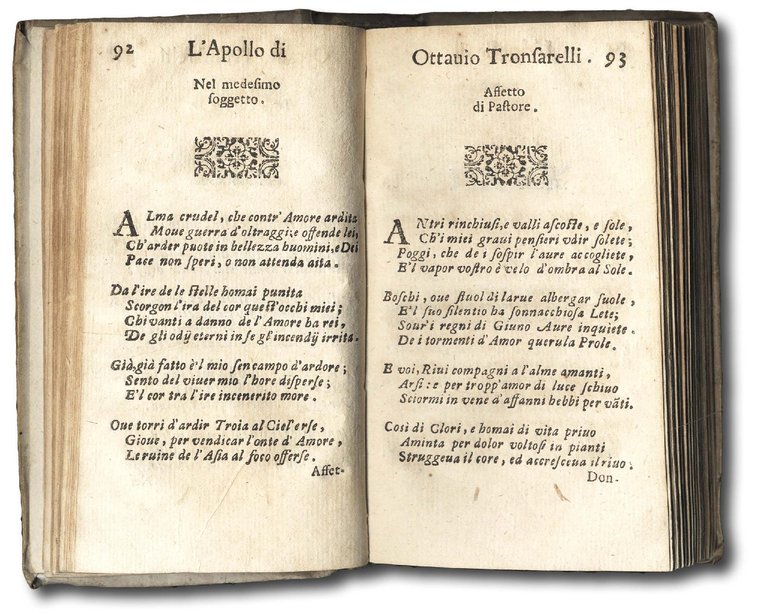 92 L'Apollo di
Nel medesimo
soggetto.
ALma crudel, che contr' Amore ardita
Moue guerra d'oltraggi, e offende lei,
Ch'arder puote in bellezza huomini, e Dei
Pace non speri, o non attenda aita.
Da l'ire de le stelle homai punita
Scorgon l'ira del cor quest'occhi miei;
Chi vanti a danno de l'Amore ha rei,
De gli odij eterni in se gl'incendij irrita.
Già, già fatto è'l mio sen campo d'ardore;
Sento del viuer mio l'hore disperse;
E'l cor tra l'ire incenerito more.
Oue torri d'ardir Troia al Ciel'erse,
Gioue, per vendicar l'onte d' Amore,
Le ruine de l'Asia al foco offerse.
Affet-
Ottauio Tronsarelli. 93
Affetto
di Pastore.
ANtri rinchiusi, e valli ascoste, e sole,
Ch'i miei graui pensieri vdir solete;
Poggi, che de i sospir l'aure accogliete,
E'l vapor vostro è velo d'ombra al Sole.
Boschi, oue stuol di larue albergar suole,
E'l suo silentio ha sonnacchiosa Lete;
Sour'i regni di Giuno Aure inquiete.
De i tormenti d'Amor querula Prole.
E voi, Riui compagni a l'alme amanti,
Arsi: e per tropp'amor di luce schiuo
Sciormi in vene d'affanni hebbi per vāti.
Così di Clori, e homai di vita priuo
Aminta per dolor voltosi in pianti
Struggeua il core, ed accresceua il riuo;
Don-